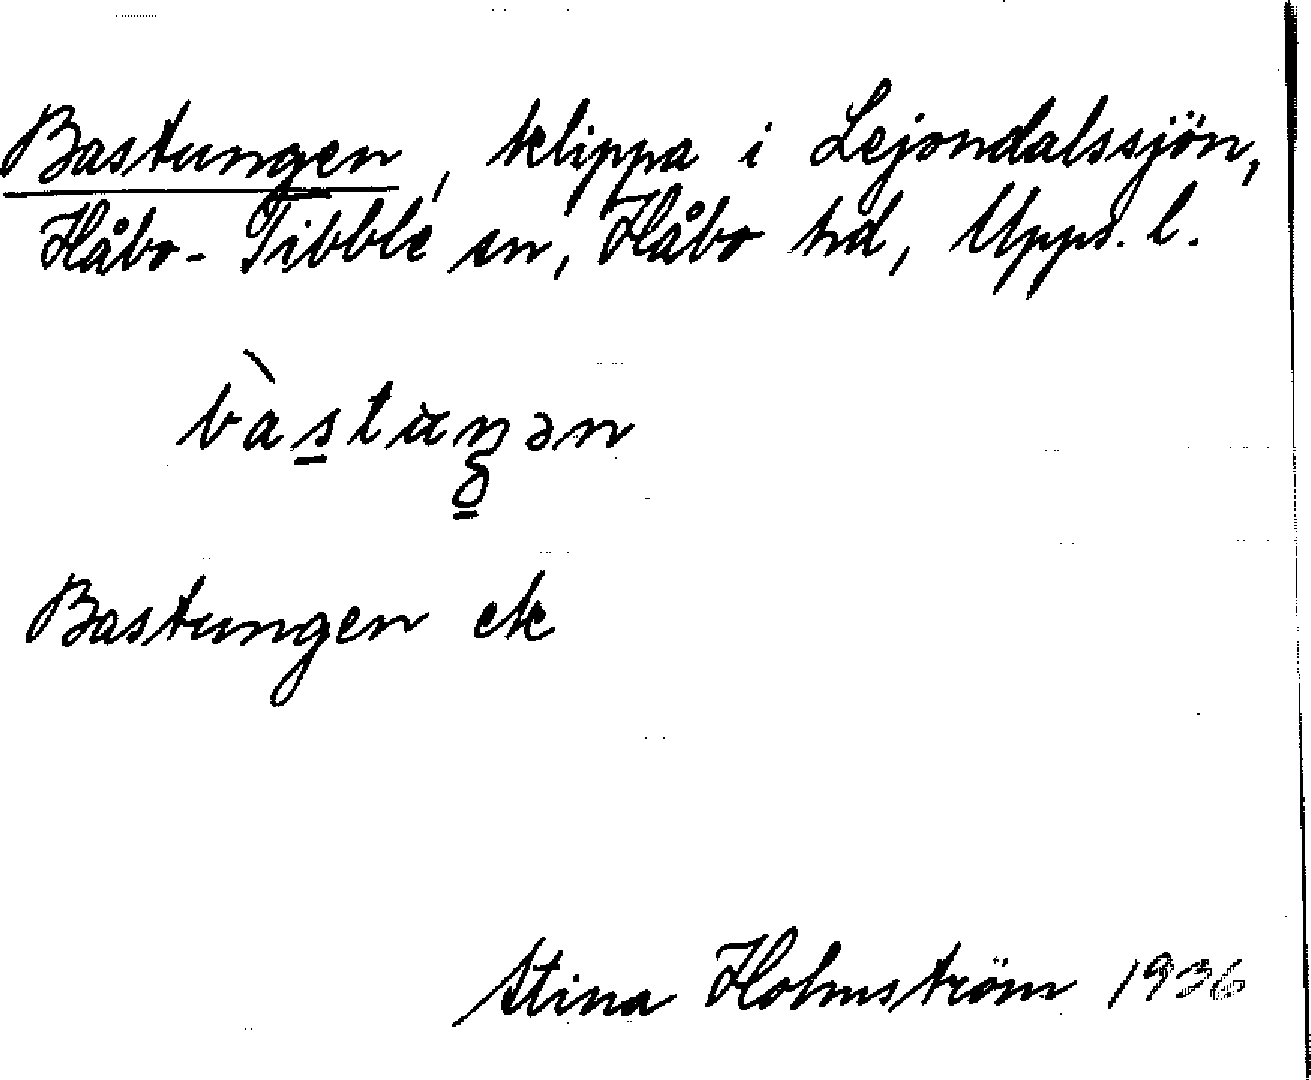 Bastungen, klippa i Lejondalssjön,
Håbo-Tibble sn, Håbo hd, Upps. l.
Bastungen ek
Stina Holmström 1936